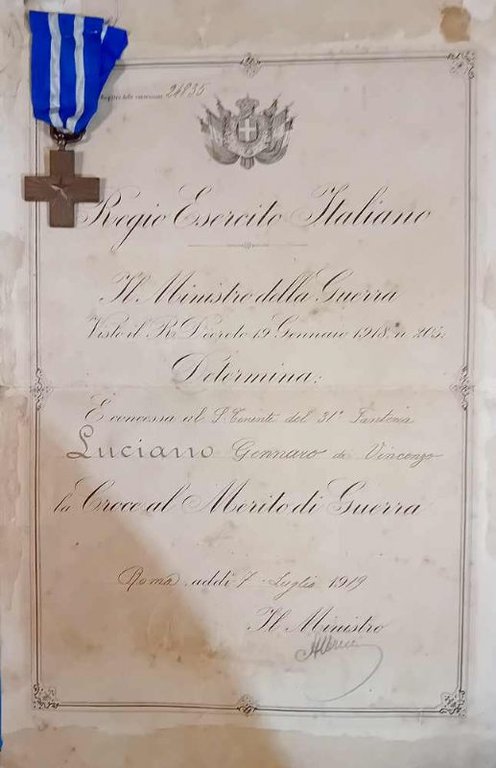 Registro delle concessioni 24835
Regio Esercito Italiano
Il Ministro della Guerra
Visto il R. Decreto 19 Gennaio 1918 n. 205;
Determina:
È concessa al S. Tenente del 31° Fanteria
Luciano Gennaro di Vincenzo
la Croce al Merito di Guerra
Roma, addì 7 Luglio 1919
Il Ministro